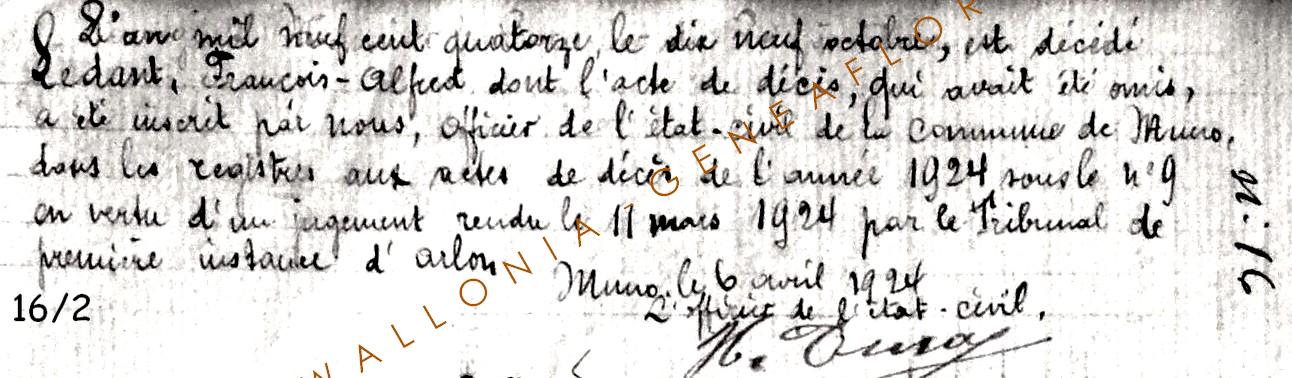 L'an mil neuf cent quatorze, le dix neuf octobre, est décédé
Ledant, François-Alfred dont l'acte de décès, qui avait été omis,
a été inscrit par nous, officier de l'état-civil de la commune de Muno,
dans les registres aux actes de décès de l'année 1924 sous le n° 9
en vertu d'un jugement rendu le 11 mars 1924 par le Tribunal de
première instance d'arlon
Muno, le 6 avril 1924
L'officier de l'état-civil.
16/2
WALLONIA-GENEAFLOR